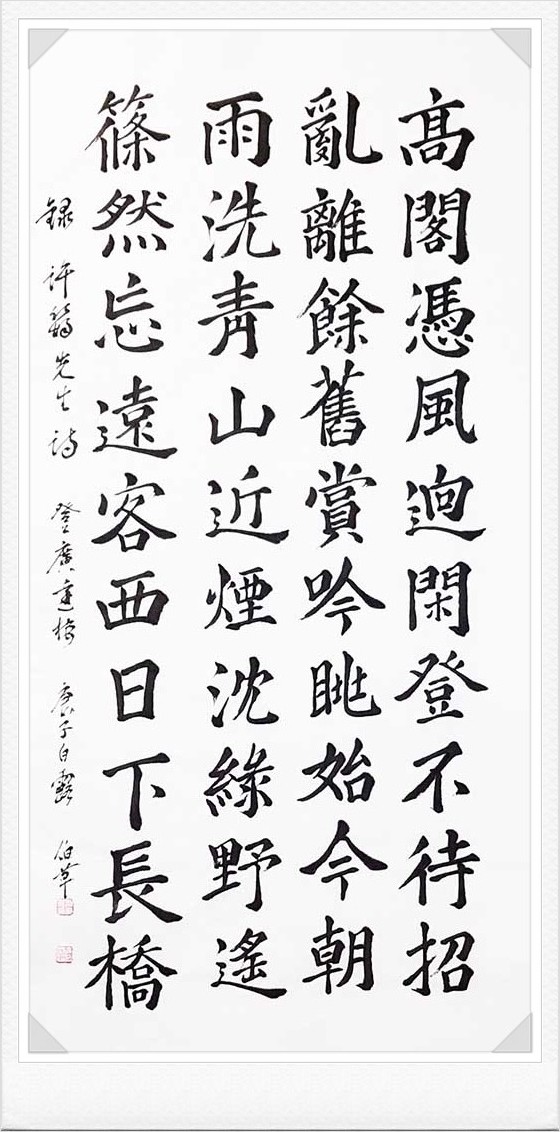 高閣憑風迥閑登不待招
亂離餘舊賞吟眺始今朝
雨洗青山近煙沈綠野遙
篠然忘遠客西日下長橋
録 許 先生詩 登廣達樓 庚子白露 伯華